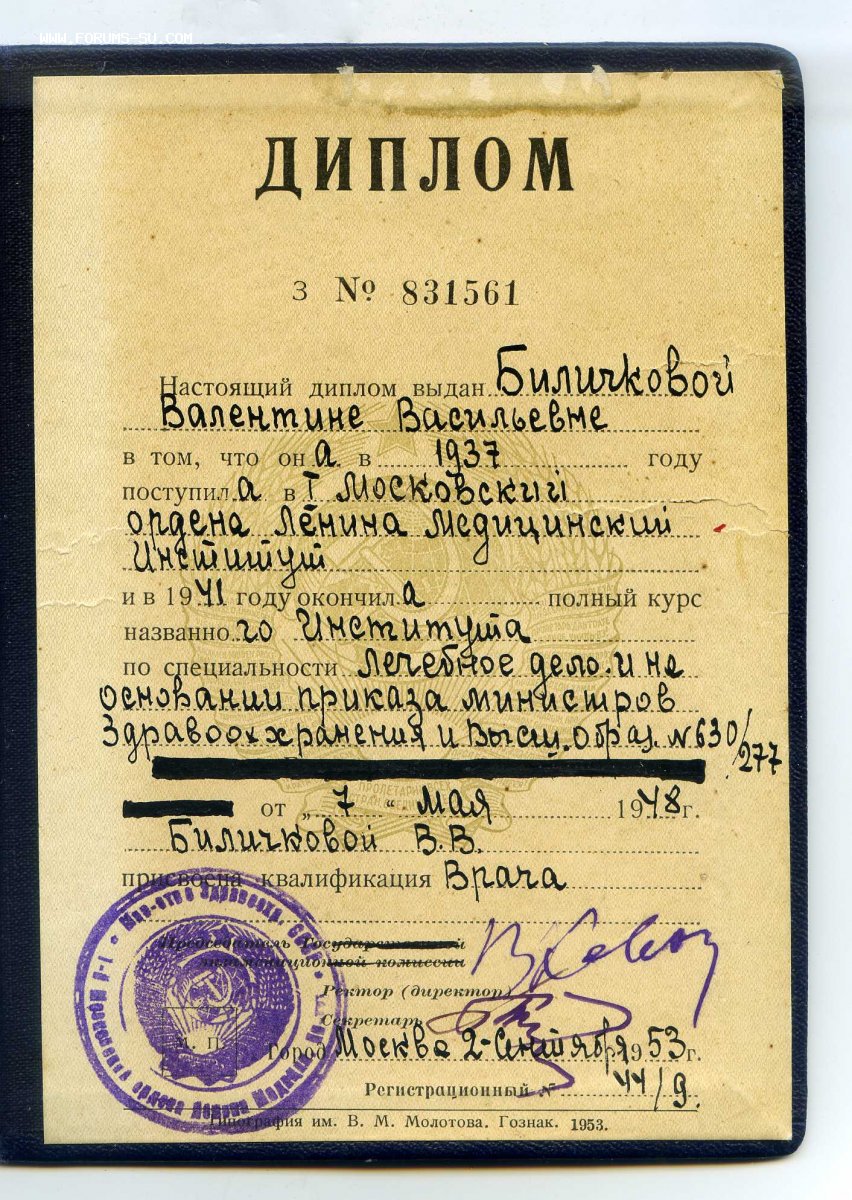 WWW.FORUMS-SU.COM
ДИПЛОМ
З № 831561
Настоящий диплом выдан Биличковой
Валентине Васильевне
в том, что она в 1937 году
поступила в I Московский
ордена Ленина Медицинский
Институт
и в 1941 году окончила полный курс
названного Института
по специальности Лечебное дело и на
основании приказа министров
Здравоохранения и Высш. образ. № 630/277
от „7" мая 1948 г.
Биличковой В.В.
присвоена квалификация Врача
Председатель Государственной
экзаменационной комиссии
Ректор (директор)
Секретарь
М. П.
Город Москва 2-Сентября 1953 г.
Регистрационный № 44/9.
Типография им. В. М. Молотова. Гознак. 1953.